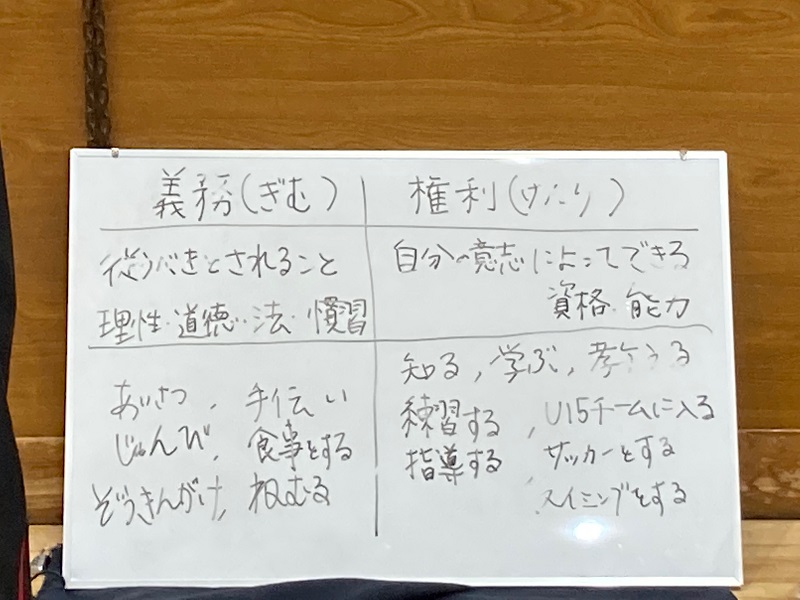 義務(ぎむ)
従うべきとされること
理性・道徳・法・慣習
あいさつ、手伝い
じゅんび、食事をする
ぞうきんがけ、ねむる
権利(けんり)
自分の意志によってできる
資格・能力
知る、学ぶ、考える
練習する、U15チームに入る
指導する、サッカーをする
スイミングをする